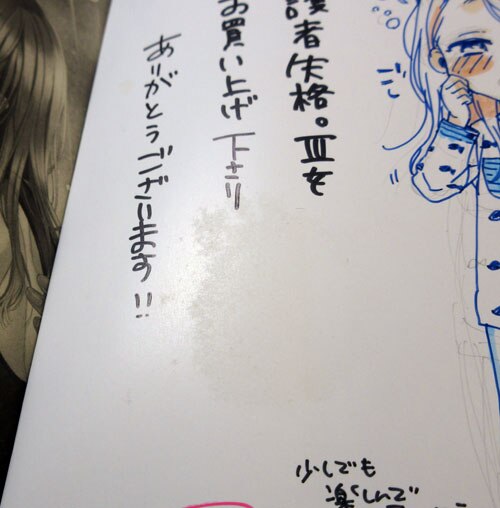 護者失格。Ⅲを
お買い上げ下さり
ありがとうございます!!
ごし
少しでも
楽しんで